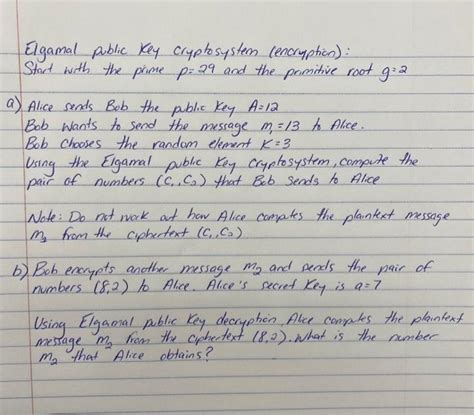 Elgamal public key cryptosystem (encryption):
Start with the prime p=29 and the primitive root g=2
a) Alice sends Bob the public key A=12
Bob wants to send the message m₁=13 to Alice.
Bob chooses the random element K=3
Using the Elgamal public key cryptosystem, compute the
pair of numbers (C₁,C₂) that Bob sends to Alice
Note: Do not work out how Alice computes the plaintext message
m₂ from the ciphertext (C₁,C₂)
b) Bob encrypts another message m₂ and sends the pair of
numbers (8,2) to Alice. Alice's secret key is a=7
Using Elgamal public key decryption, Alice computes the plaintext
message m₂ from the ciphertext (8,2). What is the number
m₂ that Alice obtains?